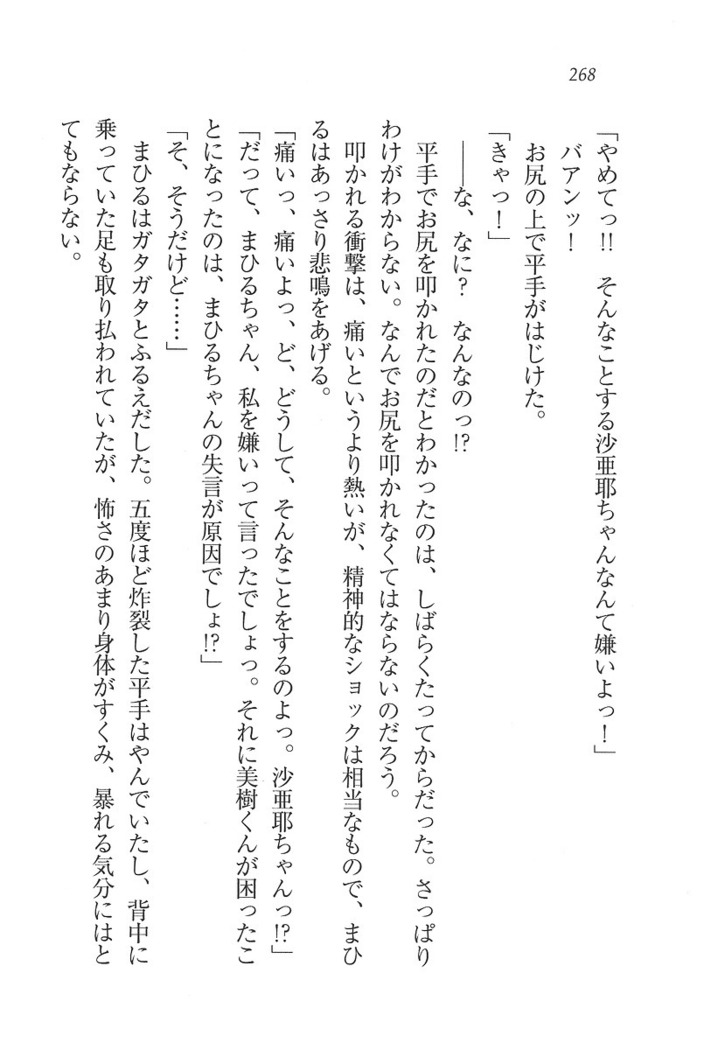 268
「やめてっ!!　そんなことする沙亜耶ちゃんなんて嫌いよっ！」
バアンッ！
お尻の上で平手がはじけた。
「きゃっ！」
――な、なに？　なんなのっ!?
平手でお尻を叩かれたのだとわかったのは、しばらくたってからだった。さっぱり
わけがわからない。なんでお尻を叩かれなくてはならないのだろう。
叩かれる衝撃は、痛いというより熱いが、精神的なショックは相当なもので、まひ
るはあっさり悲鳴をあげる。
「痛いっ、痛いよっ、ど、どうして、そんなことをするのよっ。沙亜耶ちゃんっ!?」
「だって、まひるちゃん、私を嫌いって言ったでしょっ。それに美樹くんが困ったこ
とになったのは、まひるちゃんの失言が原因でしょ!?」
「そ、そうだけど……」
まひるはガタガタとふるえだした。五度ほど炸裂した平手はやんでいたし、背中に
乗っていた足も取り払われていたが、怖さのあまり身体がすくみ、暴れる気分にはと
てもならない。